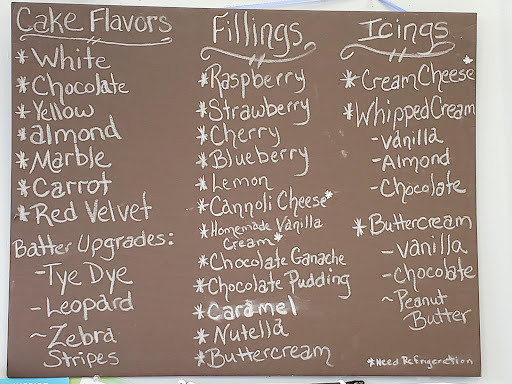 Cake Flavors
*White
*Chocolate
*Yellow
*almond
*Marble
*Carrot
*Red Velvet
Batter Upgrades:
-Tye Dye
-Leopard
~Zebra
Stripes
Fillings
*Raspberry
*Strawberry
*Cherry
*Blueberry
*Lemon
*Cannoli Cheese*
*Homemade Vanilla
Cream*
*Chocolate Ganache
*Chocolate Pudding
*Caramel
*Nutella
*Buttercream
Icings
*Cream Cheese*
*Whipped Cream
-Vanilla
-Almond
-Chocolate
*Buttercream
-Vanilla
-Chocolate
~Peanut
Butter
*Need Refrigeration